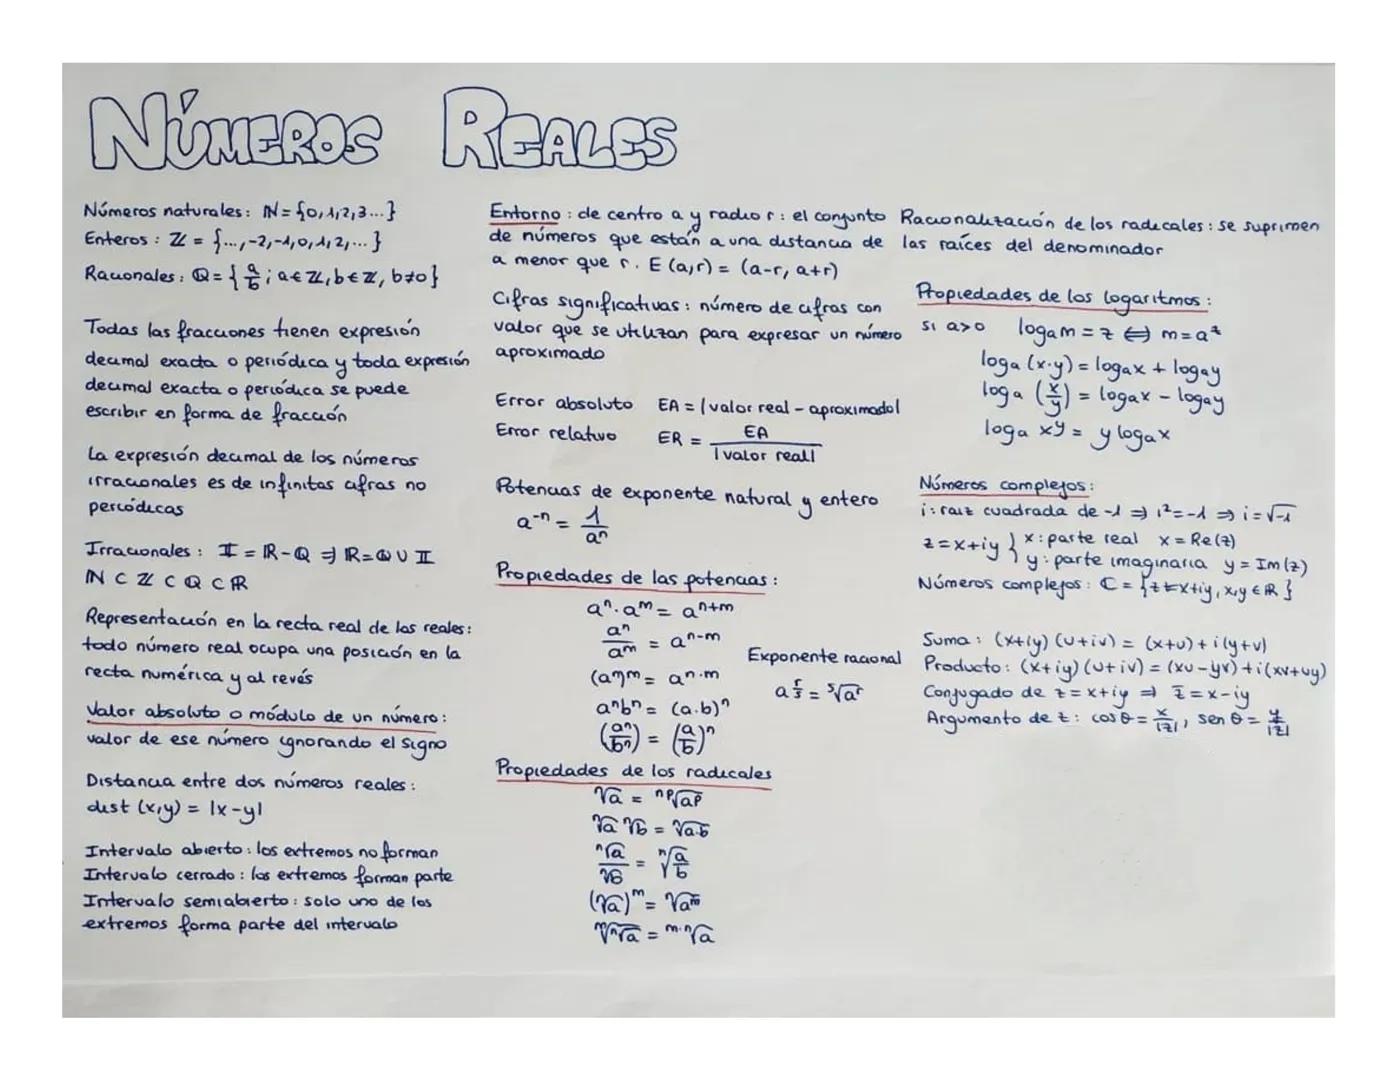 NÚMEROS REALES
Números naturales: ℕ = {0,1,2,3...}
Enteros: ℤ = {...,-2,-1,0,1,2,...}
Racionales: ℚ = {a/b ; a ∈ ℤ, b ∈ ℤ, b≠0}
Todas las fracciones tienen expresión
decimal exacta o periódica y toda expresión
decimal exacta o periódica se puede
escribir en forma de fracción
La expresión decimal de los números
irracionales es de infinitas cifras no
periódicas
Irracionales: 𝕀 = ℝ-ℚ ⇒ ℝ=ℚ∪𝕀
ℕ ⊂ ℤ ⊂ ℚ ⊂ ℝ
Representación en la recta real de los reales:
todo número real ocupa una posición en la
recta numérica y al revés
Valor absoluto o módulo de un número:
valor de ese número ignorando el signo
Distancia entre dos números reales:
dist (x,y) = |x-y|
Intervalo abierto: los extremos no forman
Intervalo cerrado: los extremos forman parte
Intervalo semiabierto: solo uno de los
extremos forma parte del intervalo
Entorno: de centro a y radio r: el conjunto
de números que están a una distancia de
a menor que r. E (a,r) = (a-r, a+r)
Cifras significativas: número de cifras con
valor que se utilizan para expresar un número
aproximado
Error absoluto EA = |valor real - aproximado|
Error relativo ER = EA / |valor real|
Potencias de exponente natural y entero
a⁻ⁿ = 1/aⁿ
Propiedades de las potencias:
aⁿ·aᵐ = aⁿ⁺ᵐ
aⁿ/aᵐ = aⁿ⁻ᵐ
(aⁿ)ᵐ = aⁿ·ᵐ
aⁿbⁿ = (a.b)ⁿ
(aⁿ/bⁿ) = (a/b)ⁿ
Exponente racional
a^(r/s) = ˢ√aʳ
Propiedades de los radicales
ⁿ√a = ⁿᵖ√aᵖ
ⁿ√a ⁿ√b = ⁿ√a.b
ⁿ√a/ⁿ√b = ⁿ√(a/b)
(ⁿ√a)ᵐ = ⁿ√aᵐ
ᵐ√ⁿ√a = ᵐ·ⁿ√a
Racionalización de los radicales: se suprimen
las raíces del denominador
Propiedades de los logaritmos:
si a>0 logₐm = z ⟺ m=aᶻ
logₐ (x·y) = logₐx + logₐy
logₐ (x/y) = logₐx - logₐy
logₐ xʸ = y logₐx
Números complejos:
i: raíz cuadrada de -1 ⇒ i²=-1 ⇒ i=√-1
z=x+iy } x: parte real x = Re(z)
y: parte imaginaria y = Im(z)
Números complejos: ℂ = {z=x+iy, x,y ∈ ℝ}
Suma: (x+iy) (u+iv) = (x+u) + i(y+v)
Producto: (x+iy) (u+iv) = (xu-yv) + i(xv+uy)
Conjugado de z = x+iy ⇒ z̄ = x-iy
Argumento de z: cos θ = x/|z|, sen θ = y/|z|